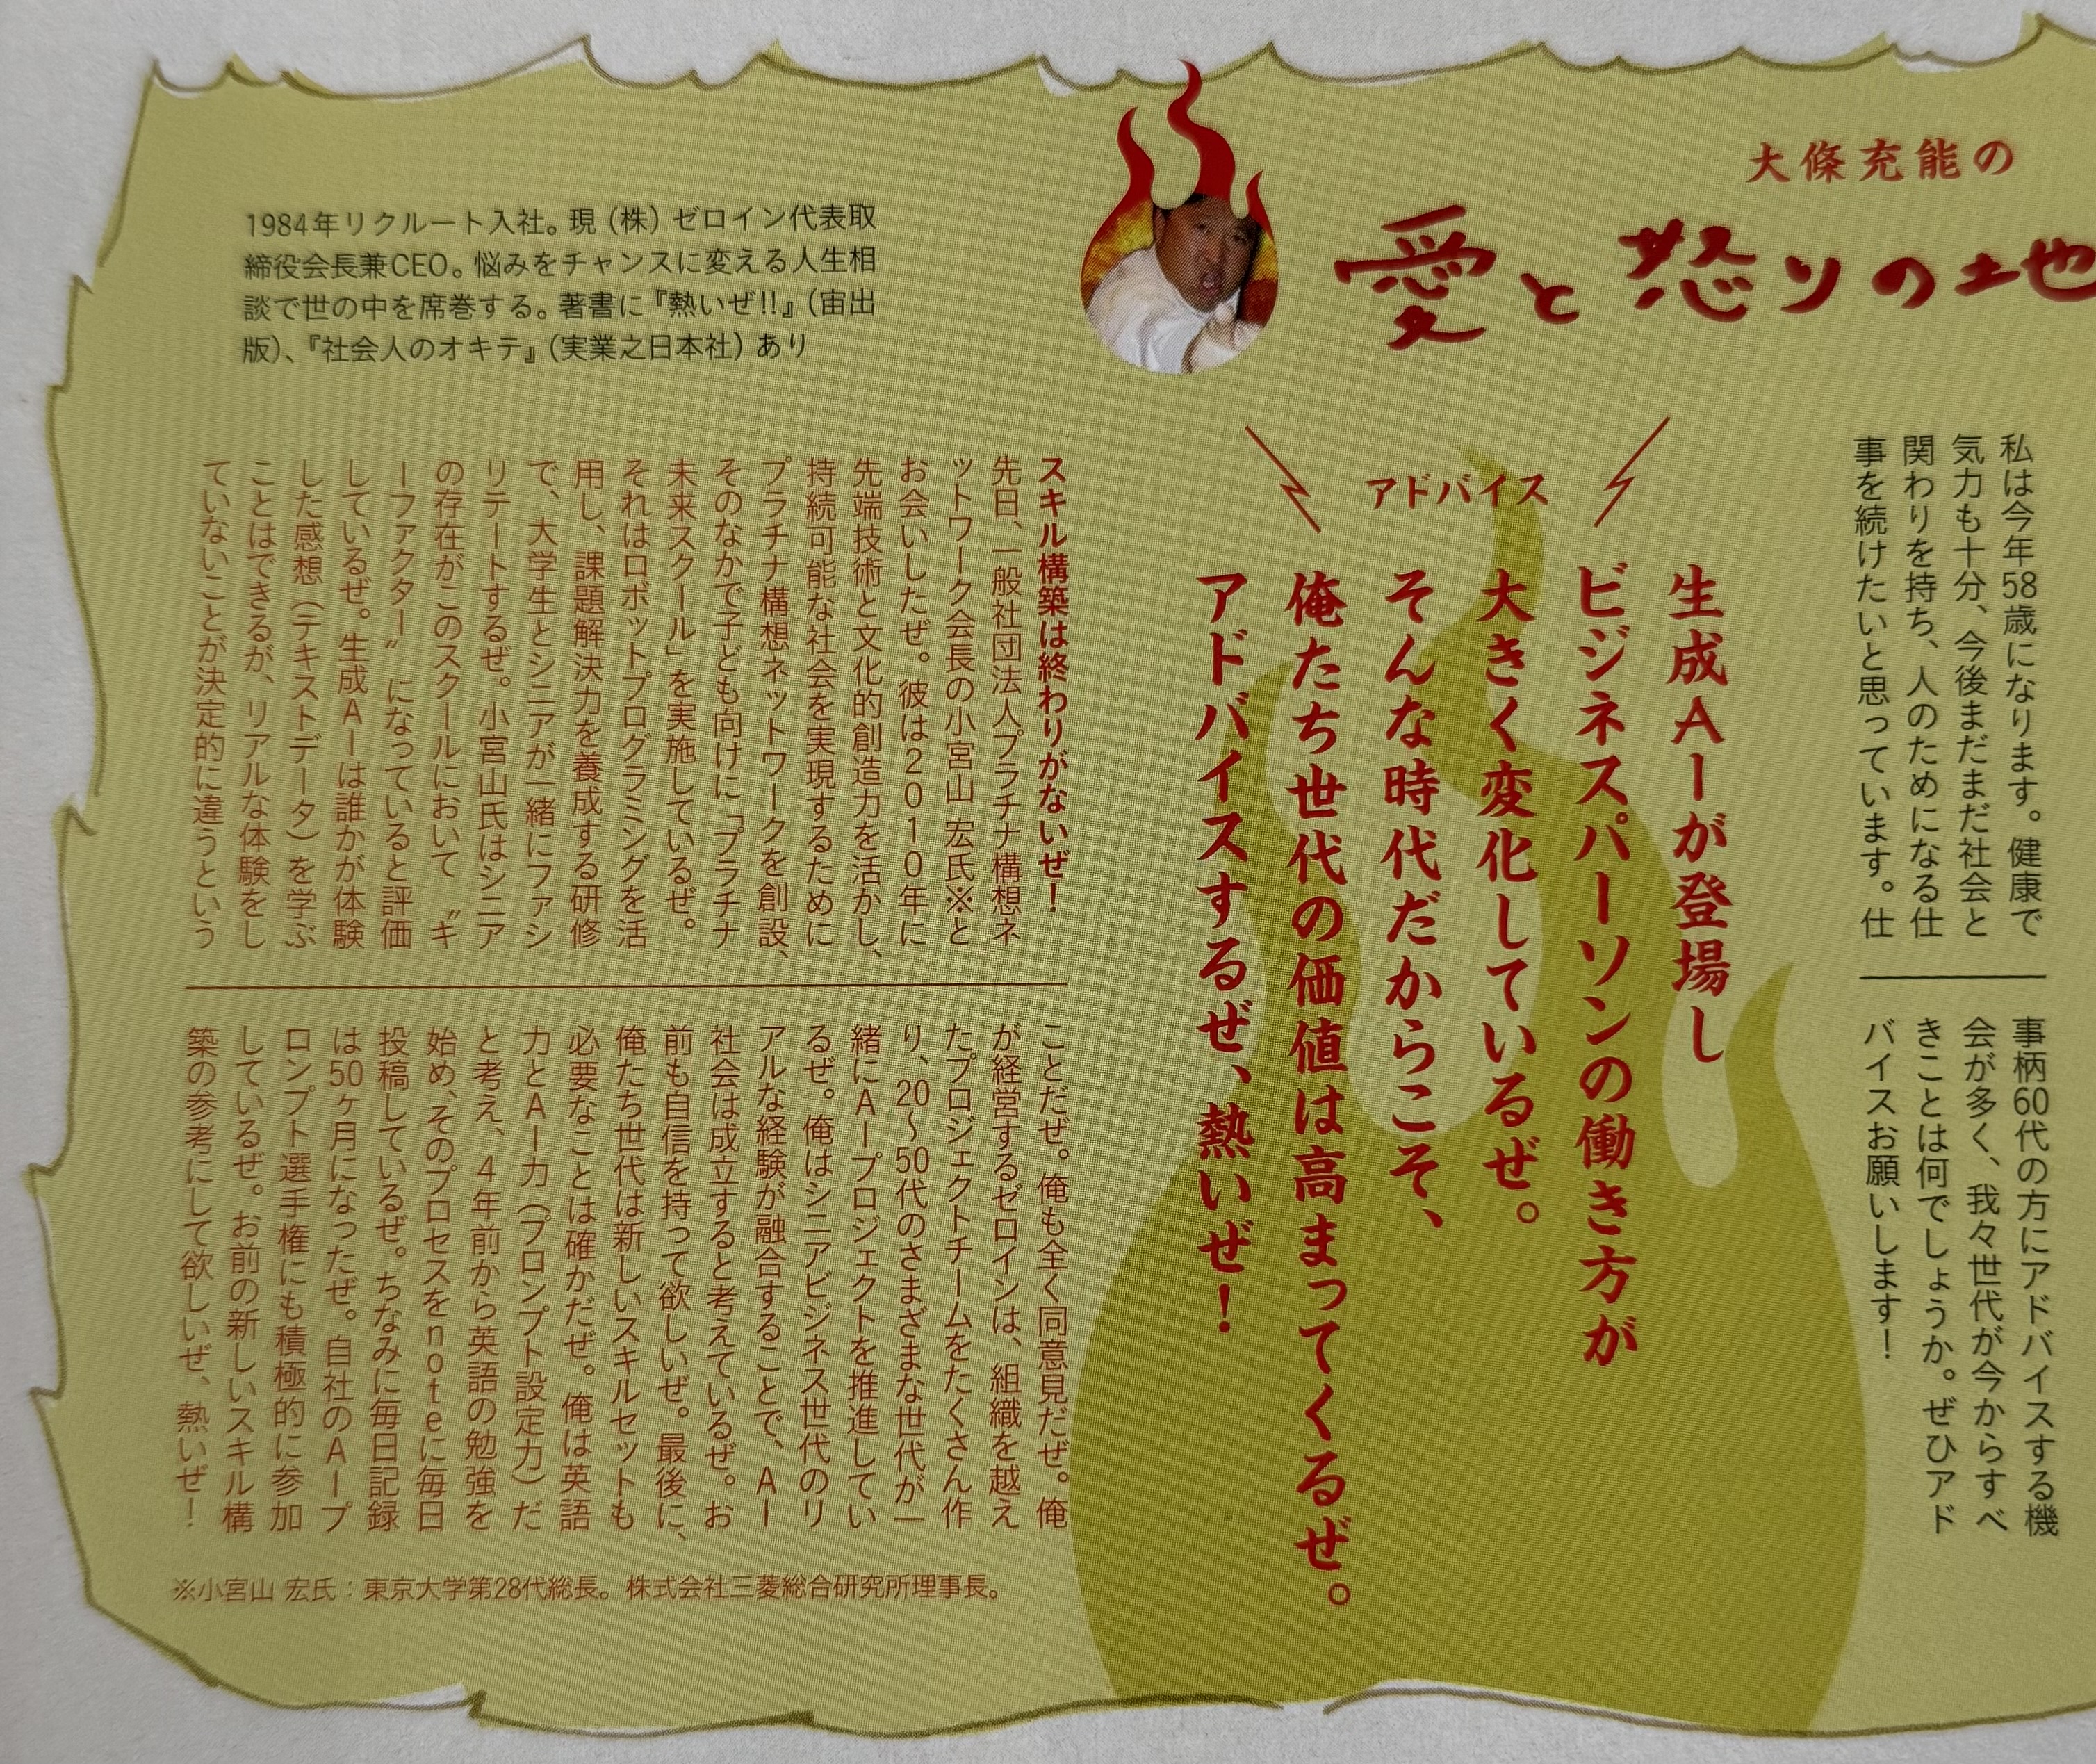 大條充能の
愛と怒りの地
1984年リクルート入社。現（株）ゼロイン代表取
締役会長兼CEO。悩みをチャンスに変える人生相
談で世の中を席巻する。著書に『熱いぜ!!』（宙出
版）、『社会人のオキテ』（実業之日本社）あり
私は今年58歳になります。健康で
気力も十分、今後まだまだ社会と
関わりを持ち、人のためになる仕
事を続けたいと思っています。仕
事柄60代の方にアドバイスする機
会が多く、我々世代が今からすべ
きことは何でしょうか。ぜひアド
バイスお願いします！
アドバイス
生成AIが登場し
ビジネスパーソンの働き方が
大きく変化しているぜ。
そんな時代だからこそ、
俺たち世代の価値は高まってくるぜ。
アドバイスするぜ、熱いぜ！
スキル構築は終わりがないぜ！
先日、一般社団法人プラチナ構想ネ
ットワーク会長の小宮山 宏氏※と
お会いしたぜ。彼は2010年に
先端技術と文化的創造力を活かし、
持続可能な社会を実現するために
プラチナ構想ネットワークを創設、
そのなかで子ども向けに「プラチナ
未来スクール」を実施しているぜ。
それはロボットプログラミングを活
用し、課題解決力を養成する研修
で、大学生とシニアが一緒にファシ
リテートするぜ。小宮山氏はシニア
の存在がこのスクールにおいて〝キ
ーファクター〟になっていると評価
しているぜ。生成AIは誰かが体験
した感想（テキストデータ）を学ぶ
ことはできるが、リアルな体験をし
ていないことが決定的に違うという
ことだぜ。俺も全く同意見だぜ。俺
が経営するゼロインは、組織を越え
たプロジェクトチームをたくさん作
り、20〜50代のさまざまな世代が一
緒にAIプロジェクトを推進してい
るぜ。俺はシニアビジネス世代のリ
アルな経験が融合することで、AI
社会は成立すると考えているぜ。お
前も自信を持って欲しいぜ。最後に、
俺たち世代は新しいスキルセットも
必要なことは確かだぜ。俺は英語
力とAI力（プロンプト設定力）だ
と考え、4年前から英語の勉強を
始め、そのプロセスをnoteに毎日
投稿しているぜ。ちなみに毎日記録
は50ヶ月になったぜ。自社のAIプ
ロンプト選手権にも積極的に参加
しているぜ。お前の新しいスキル構
築の参考にして欲しいぜ、熱いぜ！
※小宮山 宏氏：東京大学第28代総長。株式会社三菱総合研究所理事長。